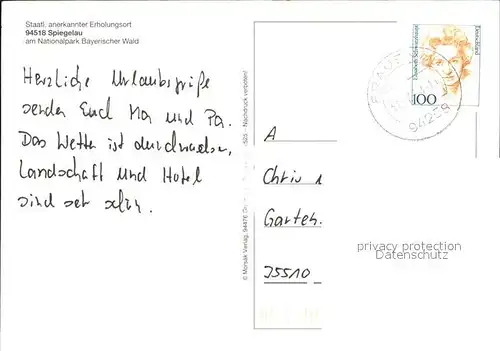 Staatl. anerkannter Erholungsort
94518 Spiegelau
am Nationalpark Bayerischer Wald
Herzliche Urlaubsgrüße
senden Euch Ma und Pa.
Das Wetter ist durchwachsen,
Landschaft und Hotel
sind sehr schön.
© Morsak Verlag, 94476
Nachdruck verboten!
Elisabeth Schwarzhaupt
Deutschland
100
94259
A
Chris
Garten
35510
privacy protection
delcampe.net